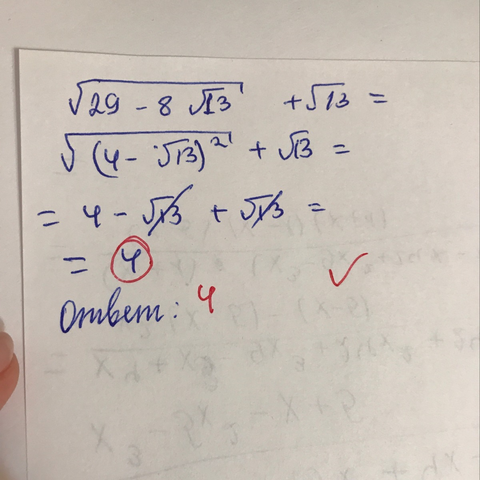 √(29 - 8√13) + √13 =
√((4 - √13)²) + √13 =
= 4 - √13 + √13 =
= 4
Ответ: 4 ✓